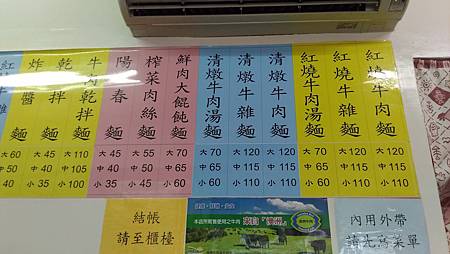 紅燒牛肉麵
大 120
中 115
小 110
紅燒牛雜麵
大 120
中 115
小 110
紅燒牛肉湯麵
大 70
中 65
小 60
清燉牛肉麵
大 120
中 115
小 110
清燉牛雜麵
大 120
中 115
小 110
清燉牛肉湯麵
大 70
中 65
小 60
鮮肉大餛飩麵
大 70
中 65
小 60
榨菜肉絲麵
大 55
中 50
小 45
陽春麵
大 45
中 40
小 35
牛肉乾拌麵
大 110
中 105
小 100
乾拌麵
大 45
中 40
小 35
炸醬麵
大 60
中 50
小 40
結帳
請至櫃檯
本店所販售使用之牛肉
來自「澳洲」
內用外帶
請先寫菜單